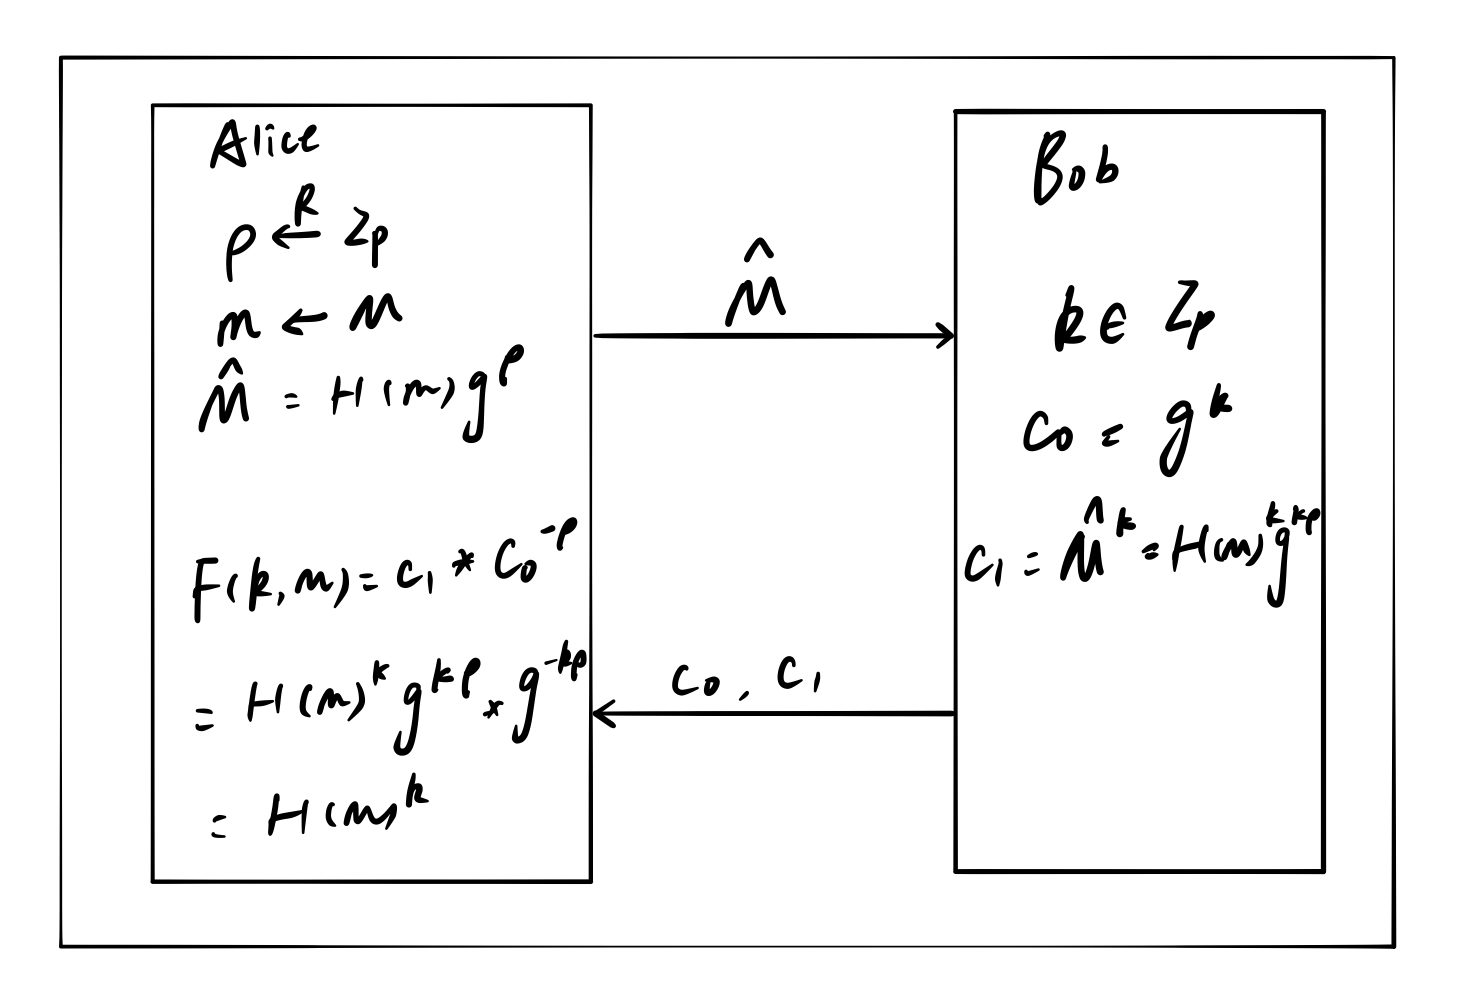 Alice
ρ ←R Zp
m ← M
M̂ = H(m)g^ρ
F(k,m) = c₁ * C₀^-ρ
= H(m)^k g^kρ × g^-kρ
= H(m)^k
M̂
c₀, c₁
Bob
k ∈ Zp
C₀ = g^k
C₁ = M̂^k = H(m)^k g^kρ